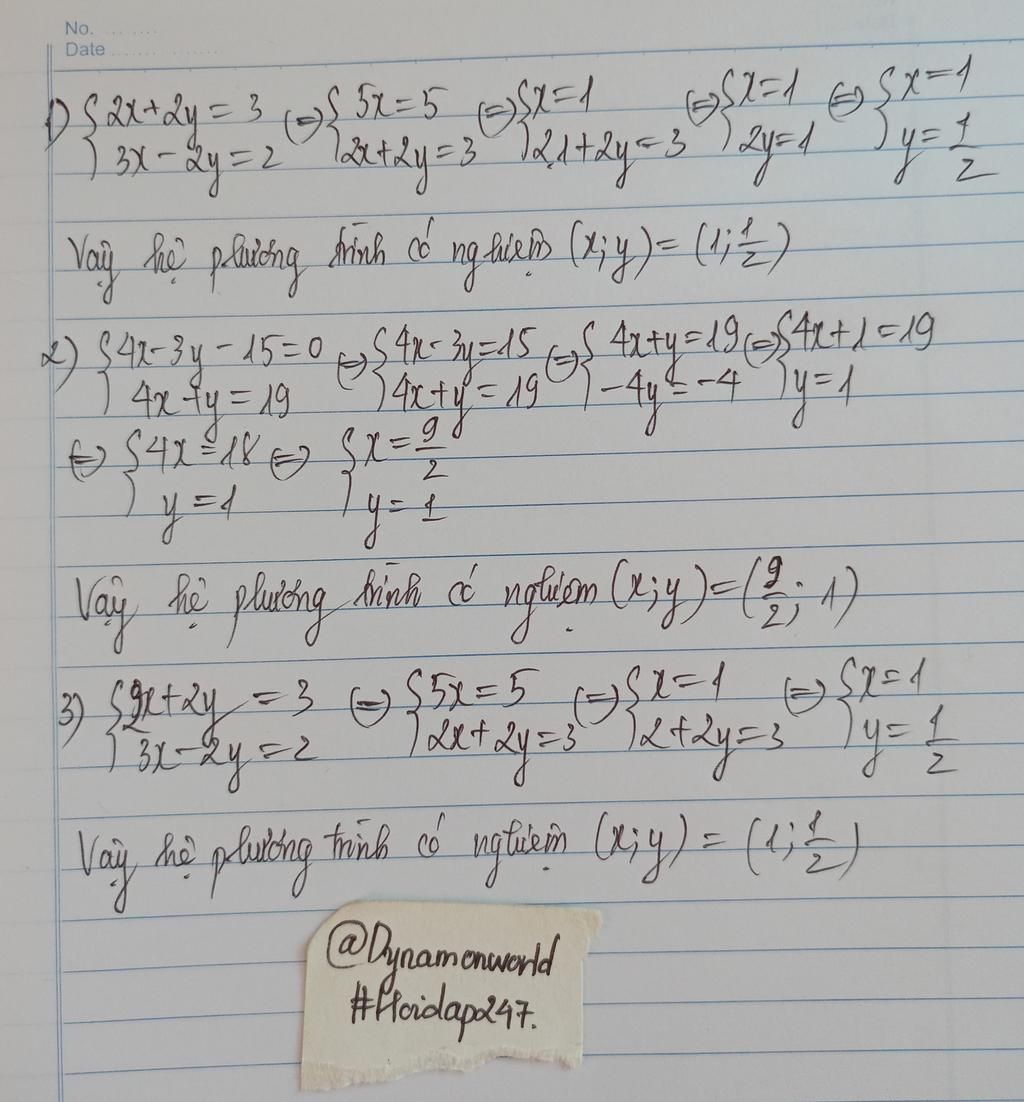 No. ........
Date ..............
1) { 2x + 2y = 3 ⇔ { 5x = 5 ⇔ { x = 1 ⇔ { x = 1 ⇔ { x = 1
3x - 2y = 2 2x + 2y = 3 2.1 + 2y = 3 2y = 1 y = 1/2
Vậy hệ phương trình có nghiệm (x; y) = (1; 1/2)
2) { 4x - 3y - 15 = 0 ⇔ { 4x - 3y = 15 ⇔ { 4x + y = 19 ⇔ { 4x + 1 = 19
4x + y = 19 4x + y = 19 -4y = -4 y = 1
⇔ { 4x = 18 ⇔ { x = 9/2
y = 1 y = 1
Vậy hệ phương trình có nghiệm (x; y) = (9/2; 1)
3) { 2x + 2y = 3 ⇔ { 5x = 5 ⇔ { x = 1 ⇔ { x = 1
3x - 2y = 2 2x + 2y = 3 2 + 2y = 3 y = 1/2
Vậy hệ phương trình có nghiệm (x; y) = (1; 1/2)
@Dynamonworld
#Hoidap247.